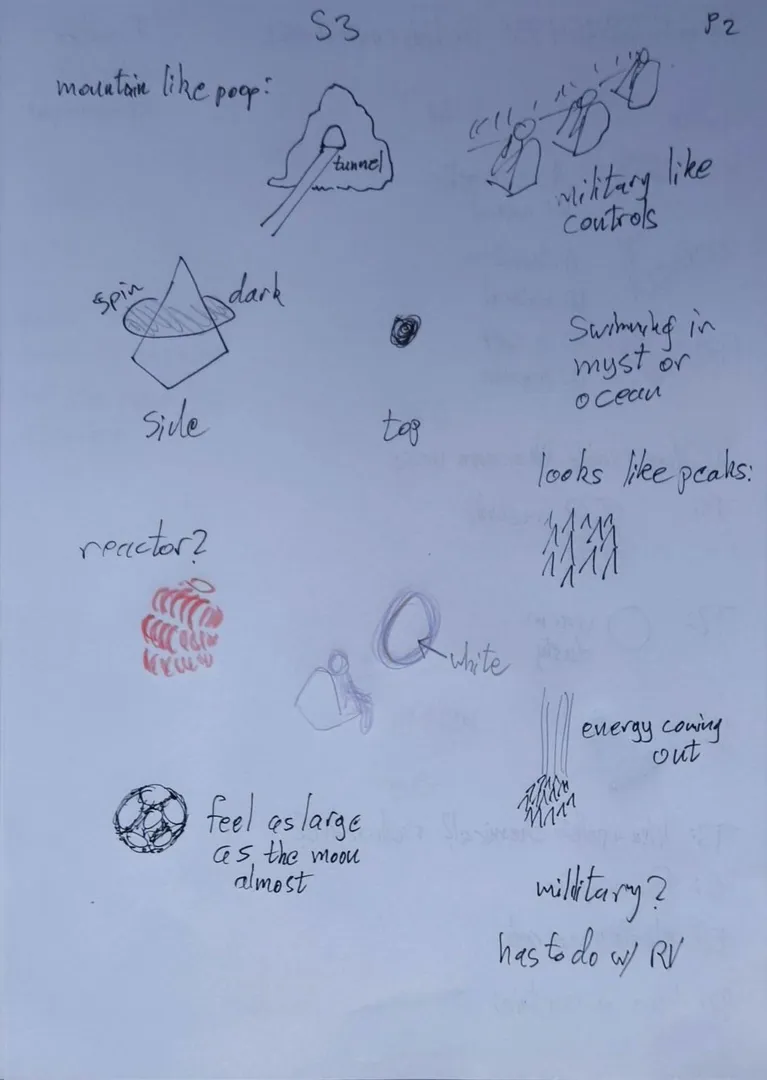 S3
P2
mountain like poop:
tunnel
military like
controls
spin
dark
side
top
Swimming in
myst or
ocean
looks like peaks:
reactor?
white
energy coming
out
feel as large
as the moon
almost
millitary?
has to do w/ RV